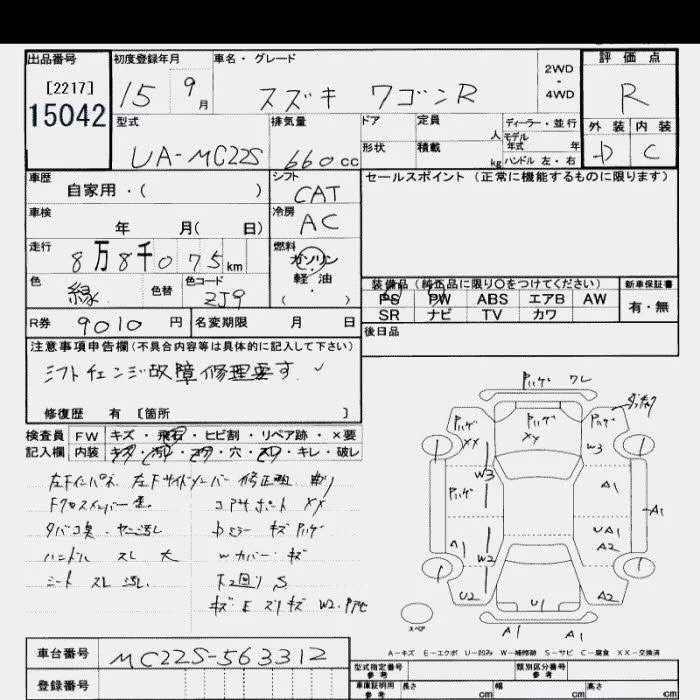 出品番号
[2217]
15042
初度登録年月
15 9月
車名・グレード
スズキ ワゴンR
2WD
・
4WD
評価点
R
外装 内装
D C
型式
UA-MC22S
排気量
660cc
ドア
定員 人
形状
積載 kg
ディーラー・並行
モデル
年式 年
ハンドル 左・右
車歴
自家用・( )
シフト
CAT
車検
年 月( 日)
冷房
AC
走行
8万8千075km
燃料
ガソリン
軽・油
( )
色
緑
色替
色コード
ZJ9
R券 9010円
名変期限 月 日
セールスポイント (正常に機能するものに限ります)
装備品 (純正品に限り○をつけてください)
新車保証書
PS PW ABS エアB AW
SR ナビ TV カワ
有・無
後日品
注意事項申告欄 (不具合内容等は具体的に記入して下さい)
シフトチェンジ故障修理要す
修復歴 有 [箇所 ]
検査員
記入欄
FW キズ・飛石・ヒビ割・リペア跡・×要
内装 キズ・汚レ・コゲ・穴・スレ・キレ・破レ
左Fインパネ 左Fサイドメンバー 修正
Fクロスメンバー
コアサポート XX
タバコ臭・ヤニ汚レ
Dミラー キズ ハゲ
ハンドル スレ 大
Wカバー キズ
シート スレ 汚レ
下回り S
キズ E スリキズ W2
ハゲ ワレ
ハゲ XX
ハゲ XY
ハゲ
W3
W3
ハゲ
A1
A1
UA1
A2
A1
W2
U2
U1
A2
A1
A1
スペア
A-キズ E-エクボ U-凹み W-補修跡 S-サビ C-腐食 XX-交換済
車台番号
MC22S-563312
登録番号
型式指定番号
参考
類別区分番号
参考
車庫証明用
参考
長さ cm 幅 cm 高さ cm